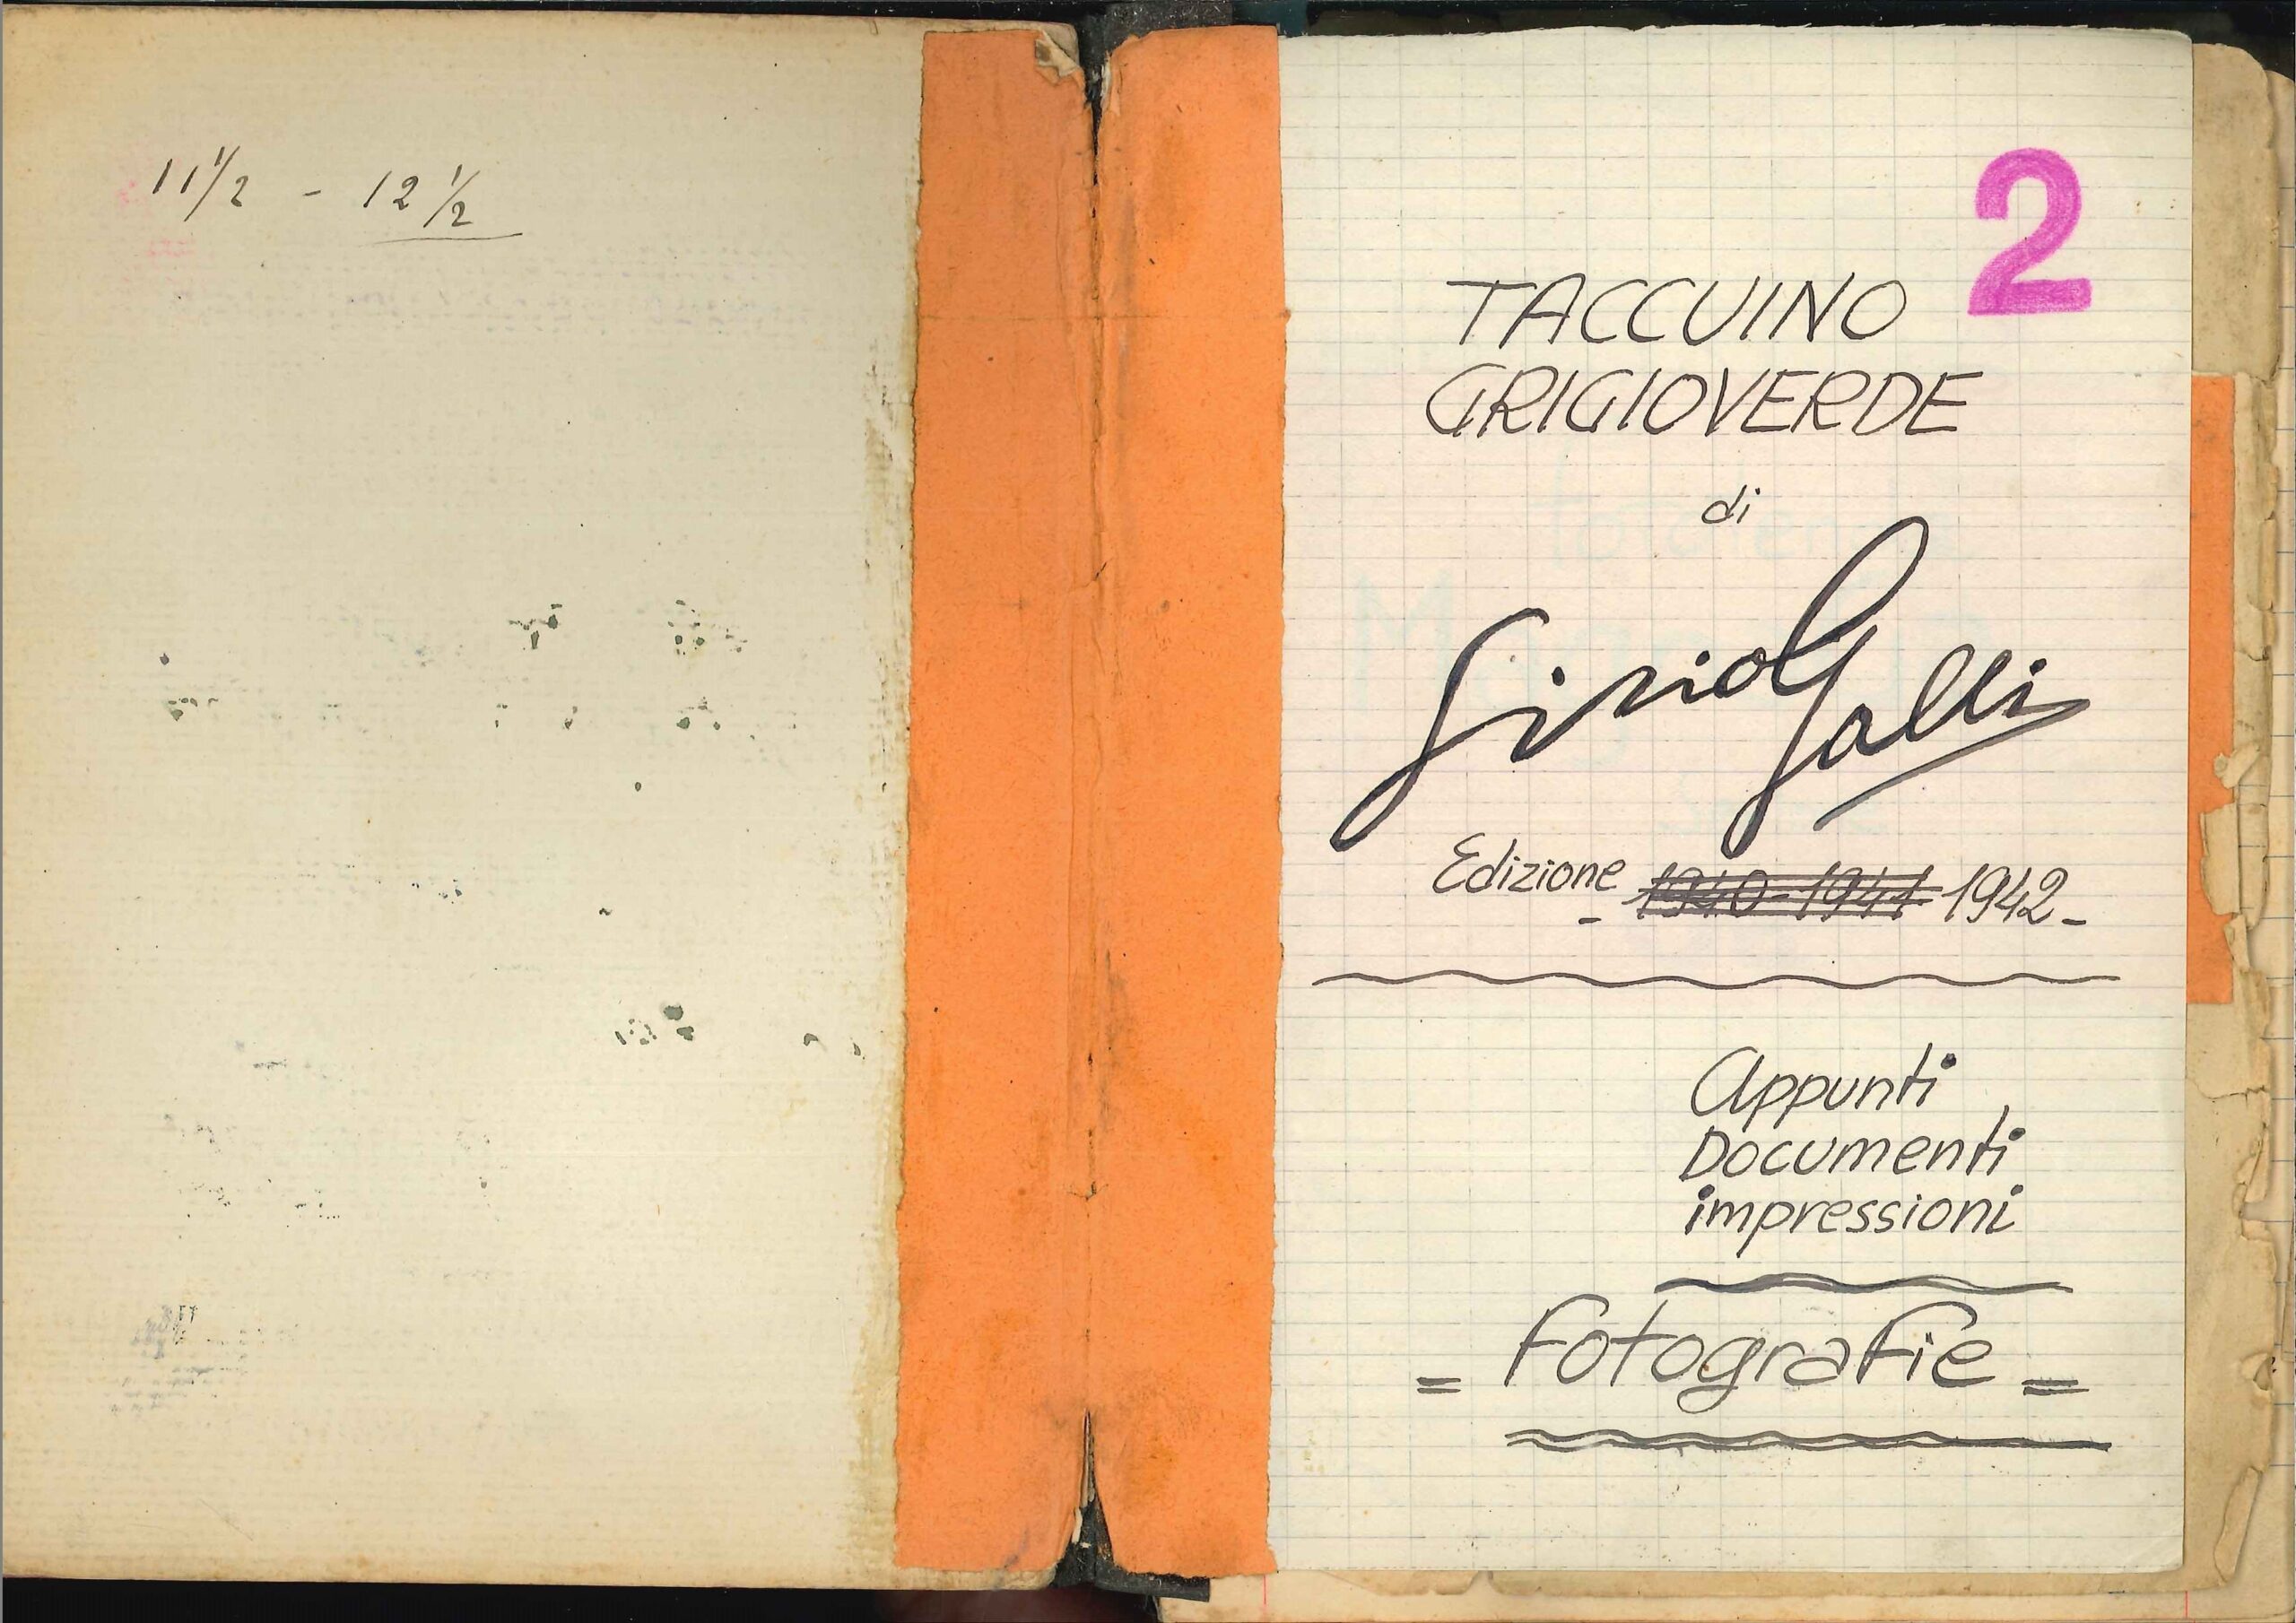 11 1/2 - 12 1/2
2
TACCUINO
GRIGIOVERDE
di
Gino Galli
Edizione
- 1940-1941 1942-
Appunti
Documenti
impressioni
= Fotografie =